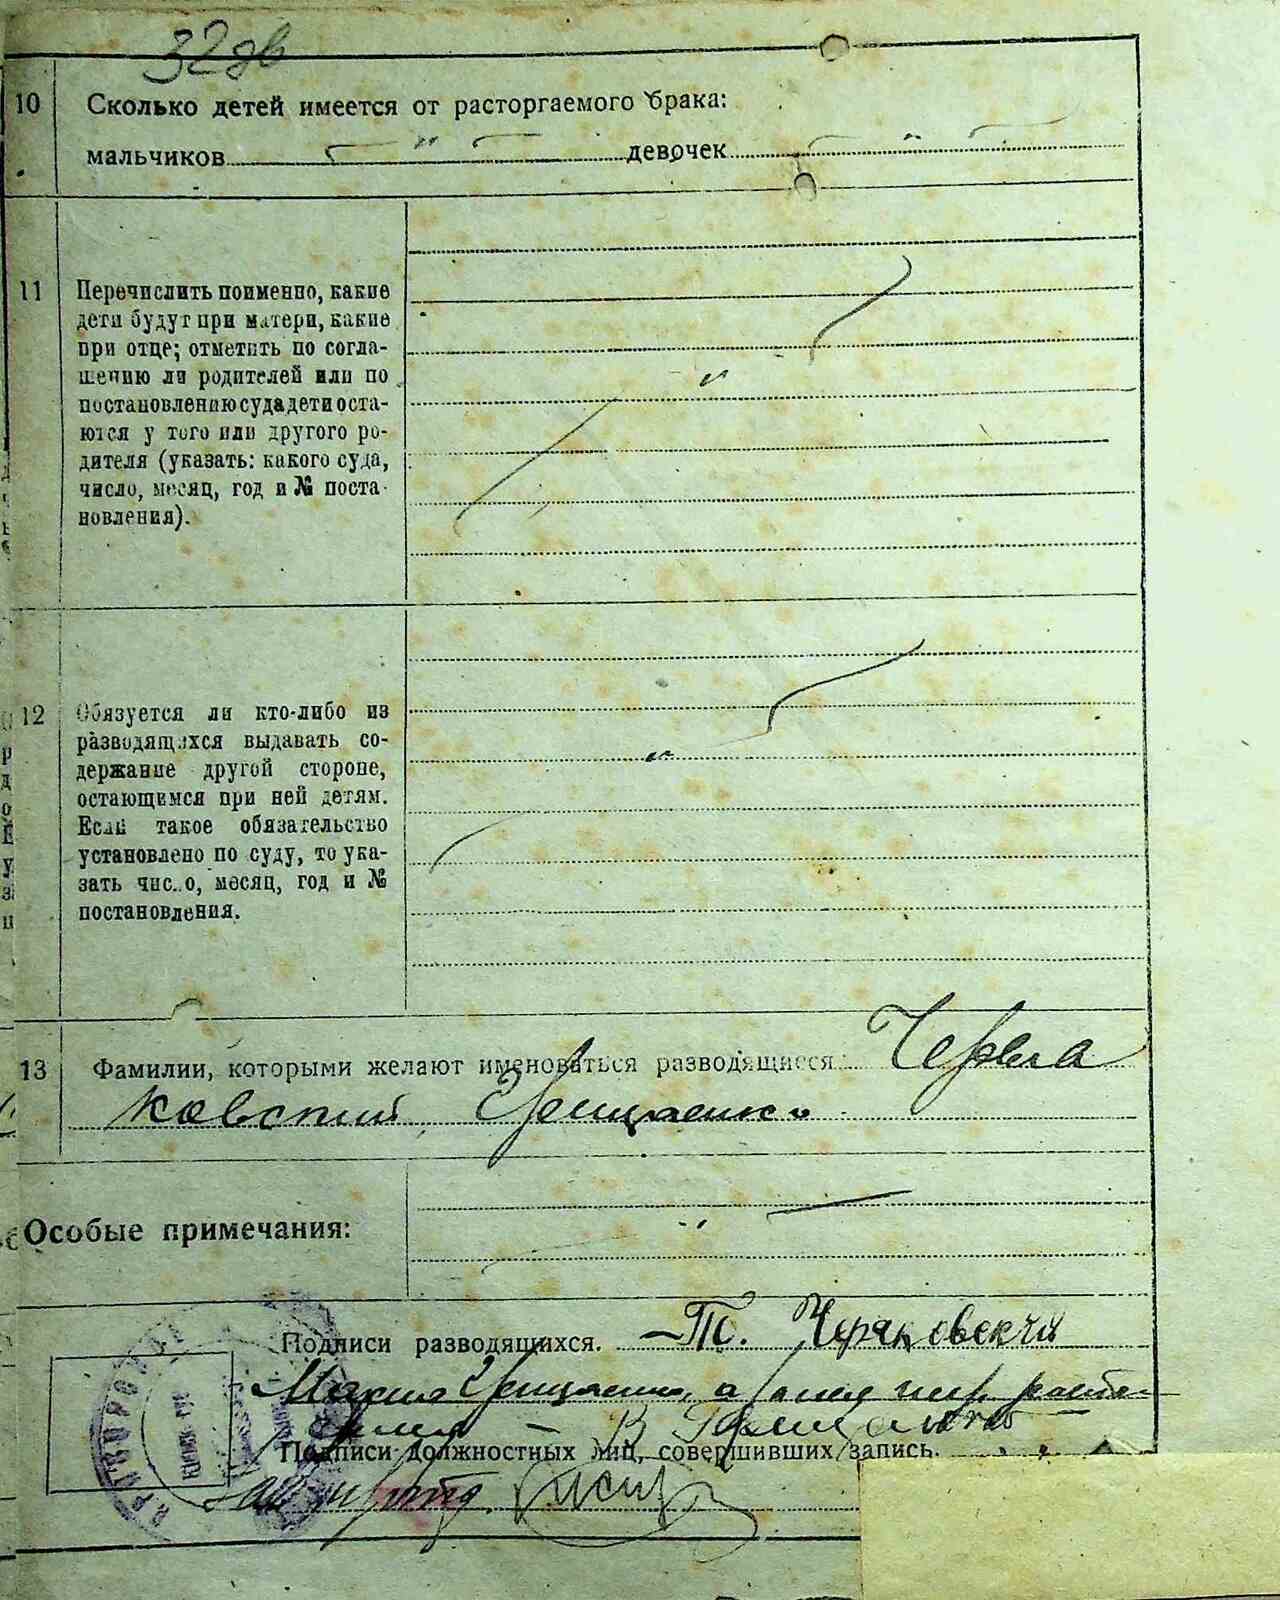 32
10 Сколько детей имеется от расторгаемого брака:
мальчиков — " — девочек — " —
11 Перечислить поименно, какие
дети будут при матери, какие
при отце; отметить по согла-
шению ли родителей или по
постановлению суда дети оста-
ются у того или другого ро-
дителя (указать: какого суда,
число, месяц, год и № поста-
новления).
12 Обязуется ли кто-либо из
разводящихся выдавать со-
держание другой стороне,
остающимся при ней детям.
Если такое обязательство
установлено по суду, то ука-
зать число, месяц, год и №
постановления.
13 Фамилии, которыми желают именоваться разводящиеся Черня
ковский, Грищенко
Особые примечания: — " —
Подписи разводящихся. — Т.
Мария Грищенко, а
Подписи должностных лиц, совершивших запись.